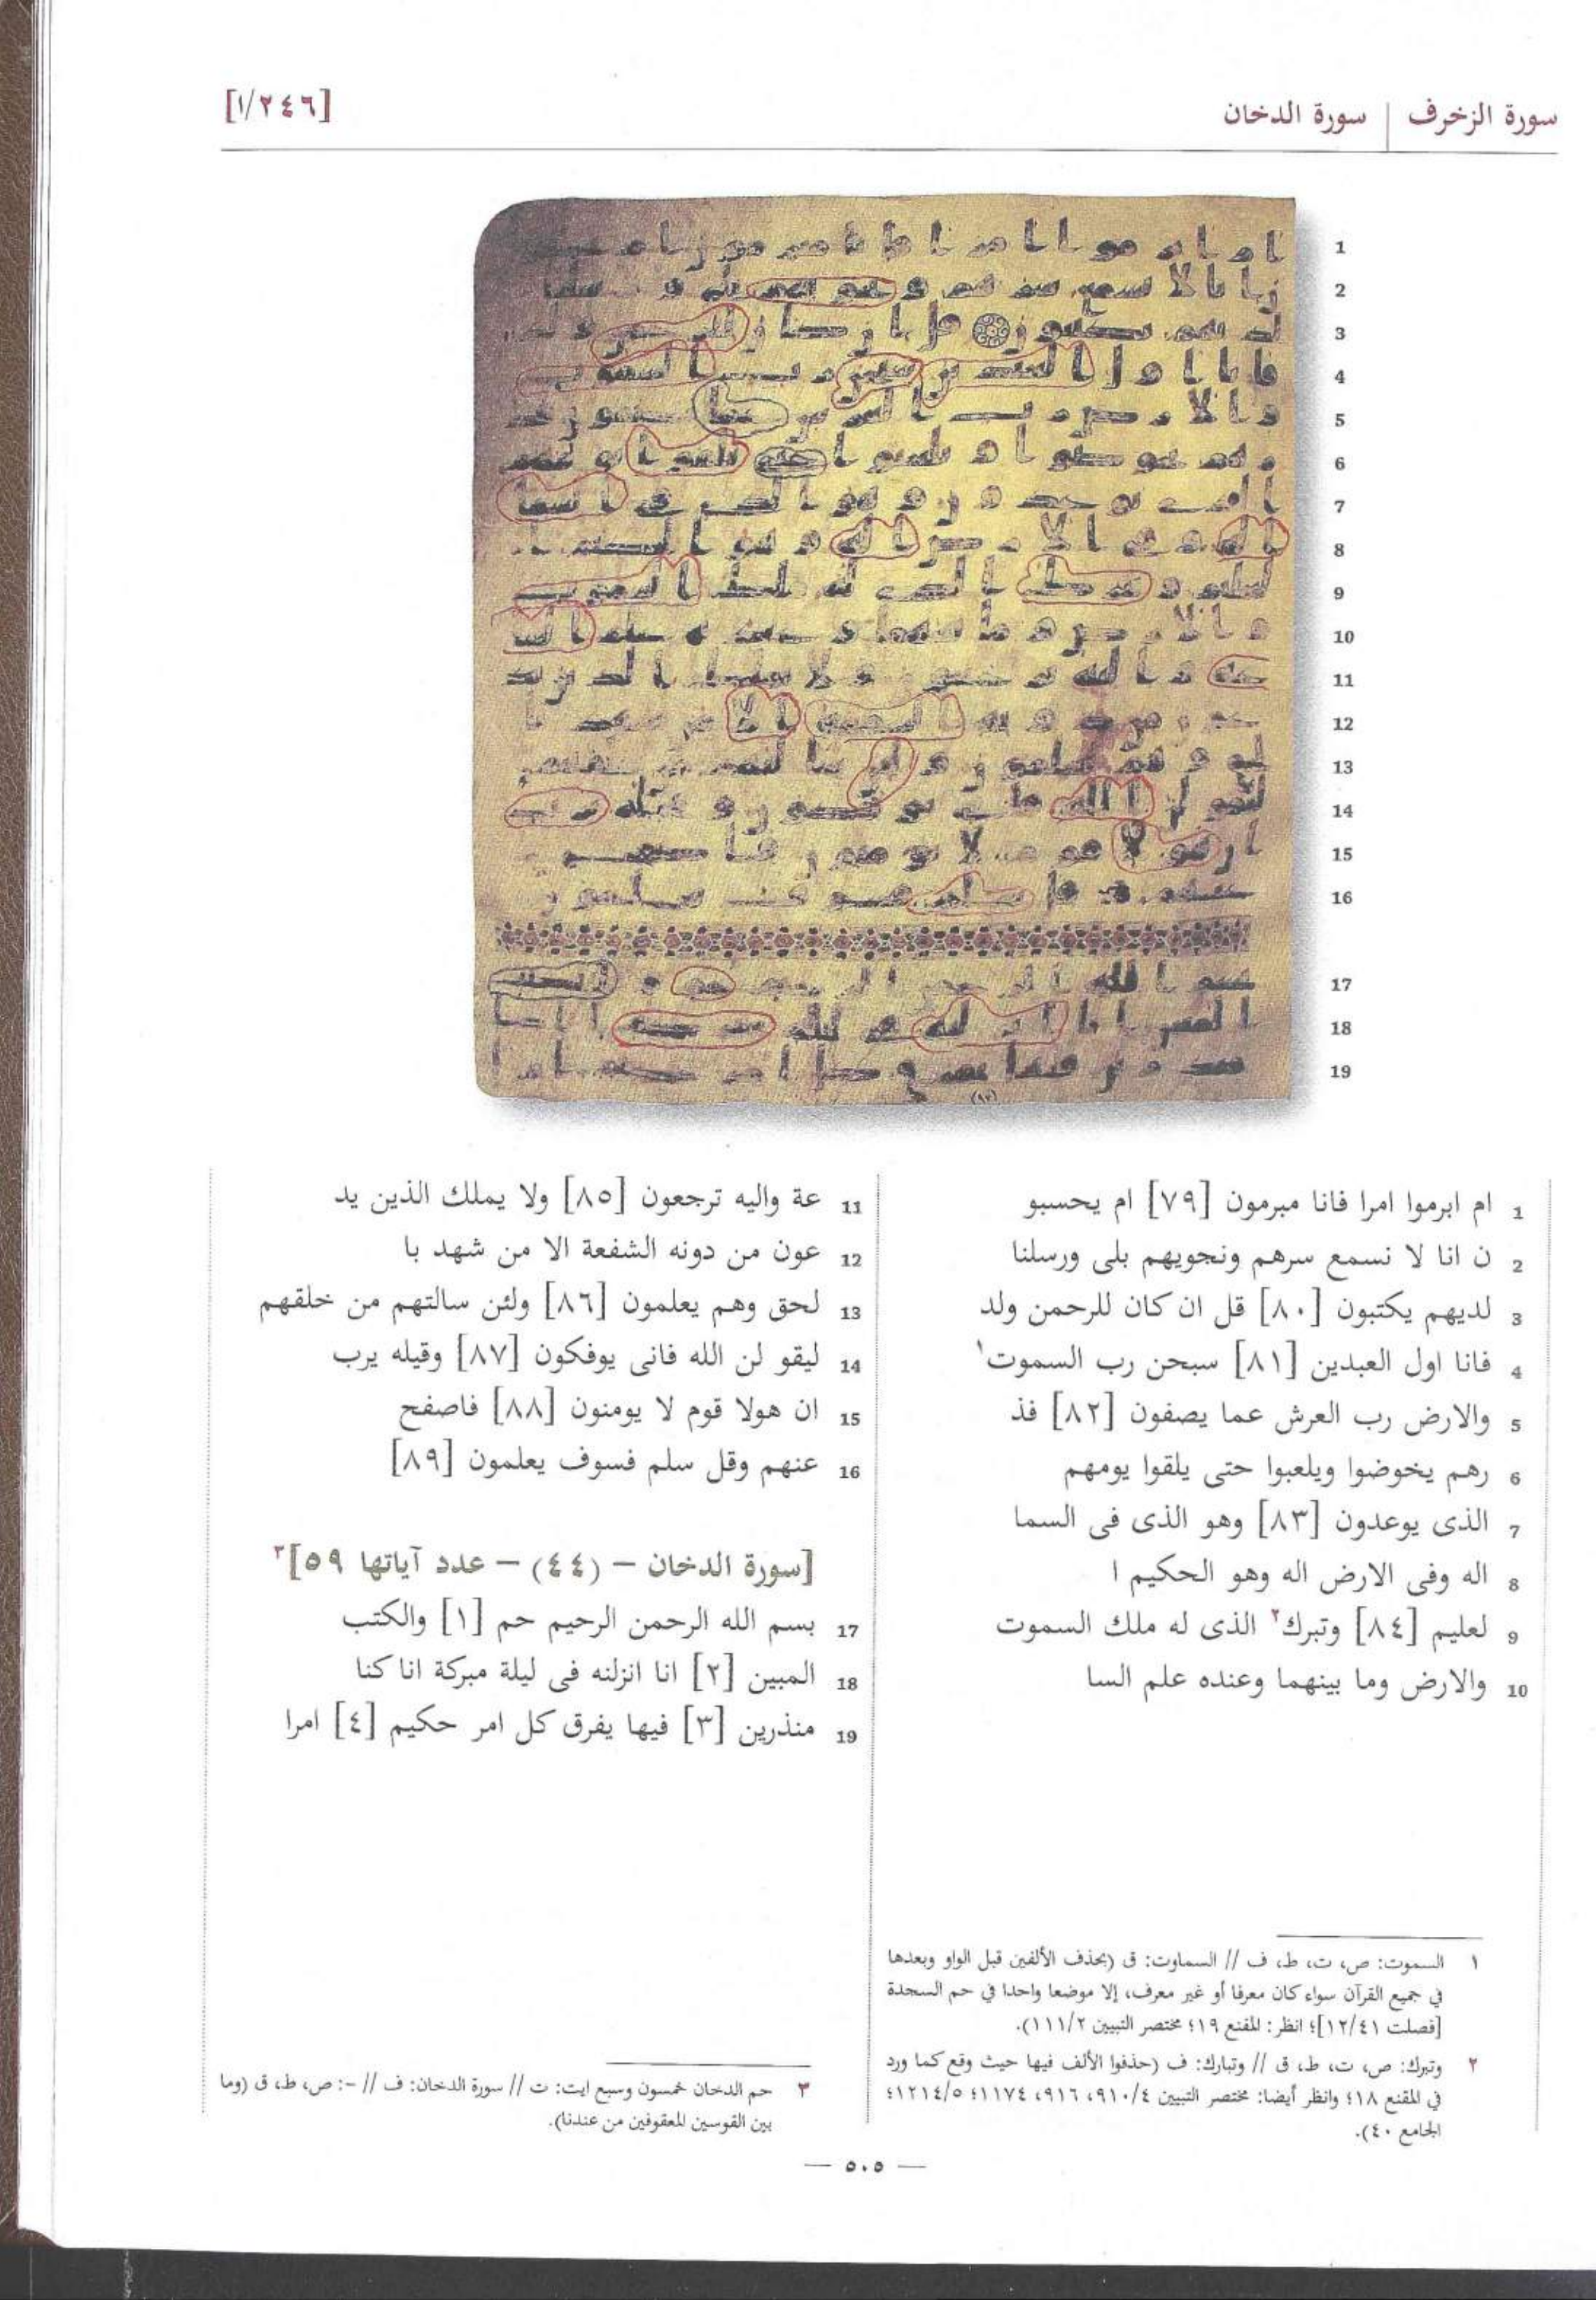 سورة الزخرف | سورة الدخان
[١/٢٤٦]
1 ام ابرموا امرا فانا مبرمون [٧٩] ام يحسبو
2 ن انا لا نسمع سرهم ونجويهم بلى ورسلنا
3 لديهم يكتبون [٨٠] قل ان كان للرحمن ولد
4 فانا اول العبدين [٨١] سبحن رب السموت١
5 والارض رب العرش عما يصفون [٨٢] فذ
6 رهم يخوضوا ويلعبوا حتى يلقوا يومهم
7 الذى يوعدون [٨٣] وهو الذى فى السما
8 اله وفى الارض اله وهو الحكيم ا
9 لعليم [٨٤] وتبرك٢ الذى له ملك السموت
10 والارض وما بينهما وعنده علم السا
11 عة واليه ترجعون [٨٥] ولا يملك الذين يد
12 عون من دونه الشفعة الا من شهد با
13 لحق وهم يعلمون [٨٦] ولئن سالتهم من خلقهم
14 ليقو لن الله فانى يوفكون [٨٧] وقيله يرب
15 ان هولا قوم لا يومنون [٨٨] فاصفح
16 عنهم وقل سلم فسوف يعلمون [٨٩]
[سورة الدخان – (٤٤) – عدد آياتها ٥٩]٣
17 بسم الله الرحمن الرحيم حم [١] والكتب
18 المبين [٢] انا انزلنه فى ليلة مبركة انا كنا
19 منذرين [٣] فيها يفرق كل امر حكيم [٤] امرا
١ السموت: ص، ت، ط، ف // السماوت: ق (بحذف الألفين قبل الواو وبعدها
في جميع القرآن سواء كان معرفا أو غير معرف، إلا موضعا واحدا في حم السجدة
[فصلت ١٢/٤١]؛ انظر: المقنع ١٩؛ مختصر التبيين ١١١/٢).
٢ وتبرك: ص، ت، ط، ق // وتبارك: ف (حذفوا الألف فيها حيث وقع كما ورد
في المقنع ١٨؛ وانظر أيضا: مختصر التبيين ٩١٠/٤، ٩١٦، ١١٧٤؛ ١٢١٤/٥؛
الجامع ٤٠).
٣ حم الدخان خمسون وسبع ايت: ت // سورة الدخان: ف // -: ص، ط، ق (وما
بين القوسين المعقوفين من عندنا).
— ٥٠٥ —